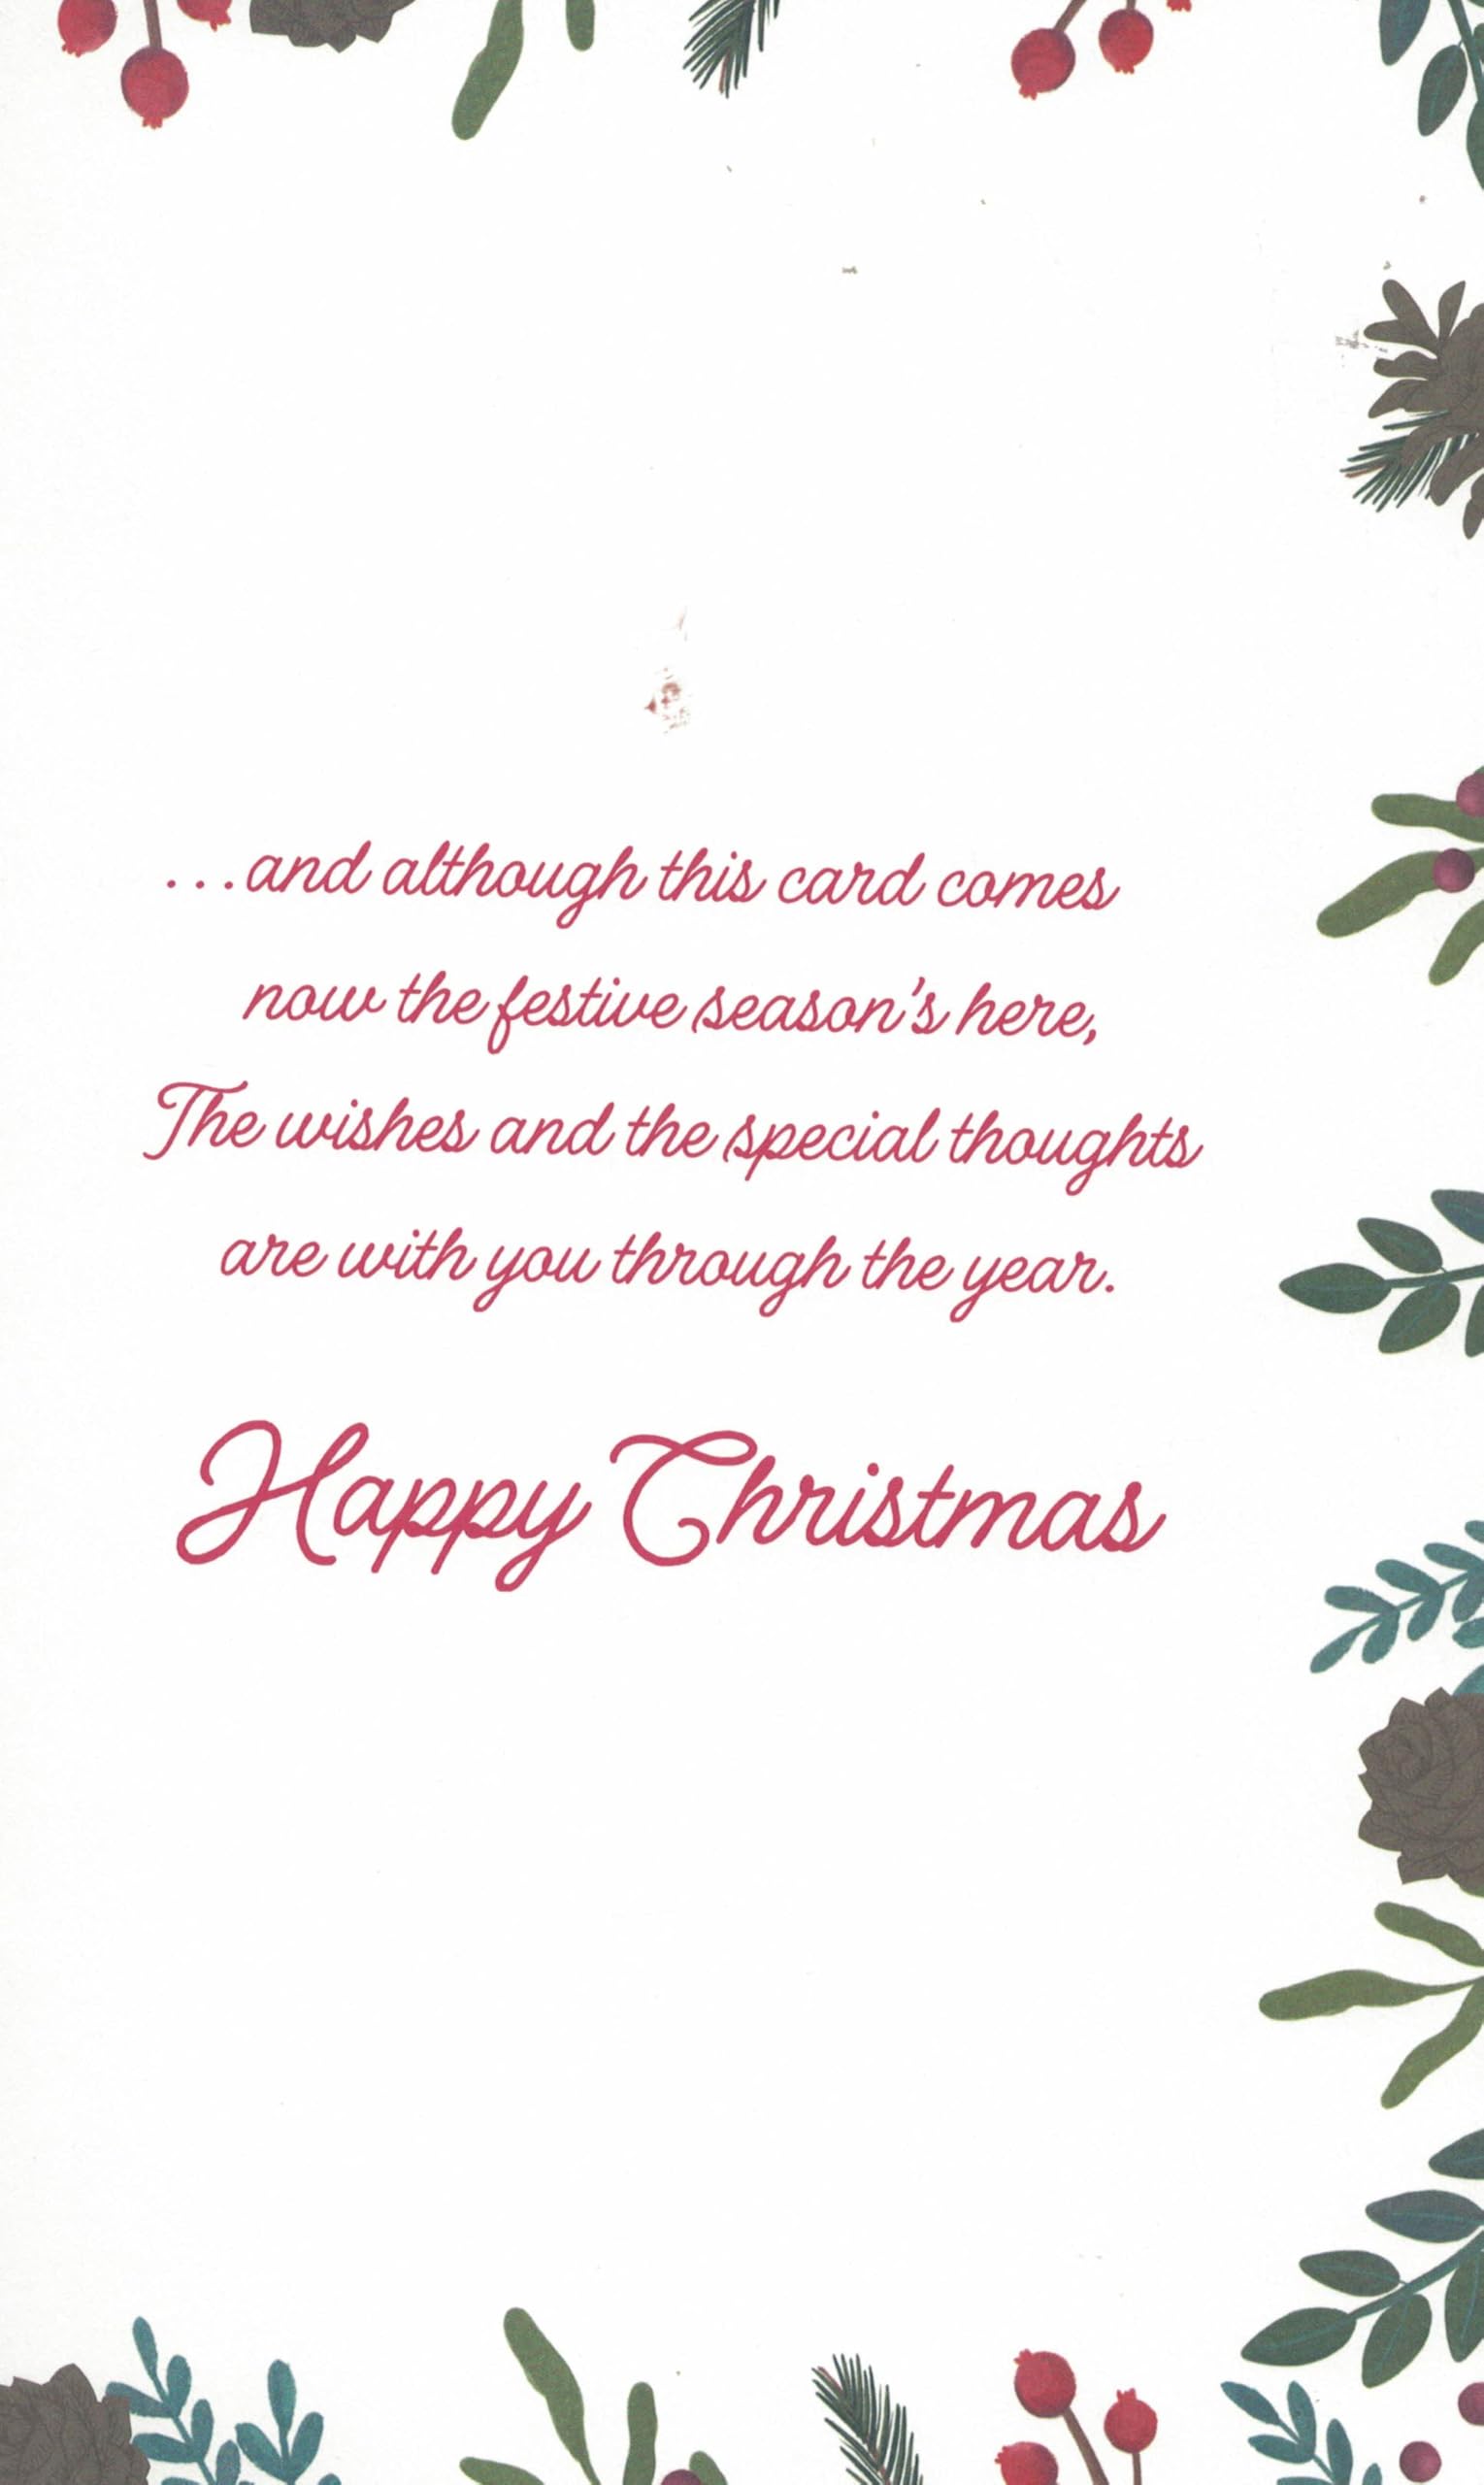 ...and although this card comes
now the festive season's here,
The wishes and the special thoughts
are with you through the year.
Happy Christmas